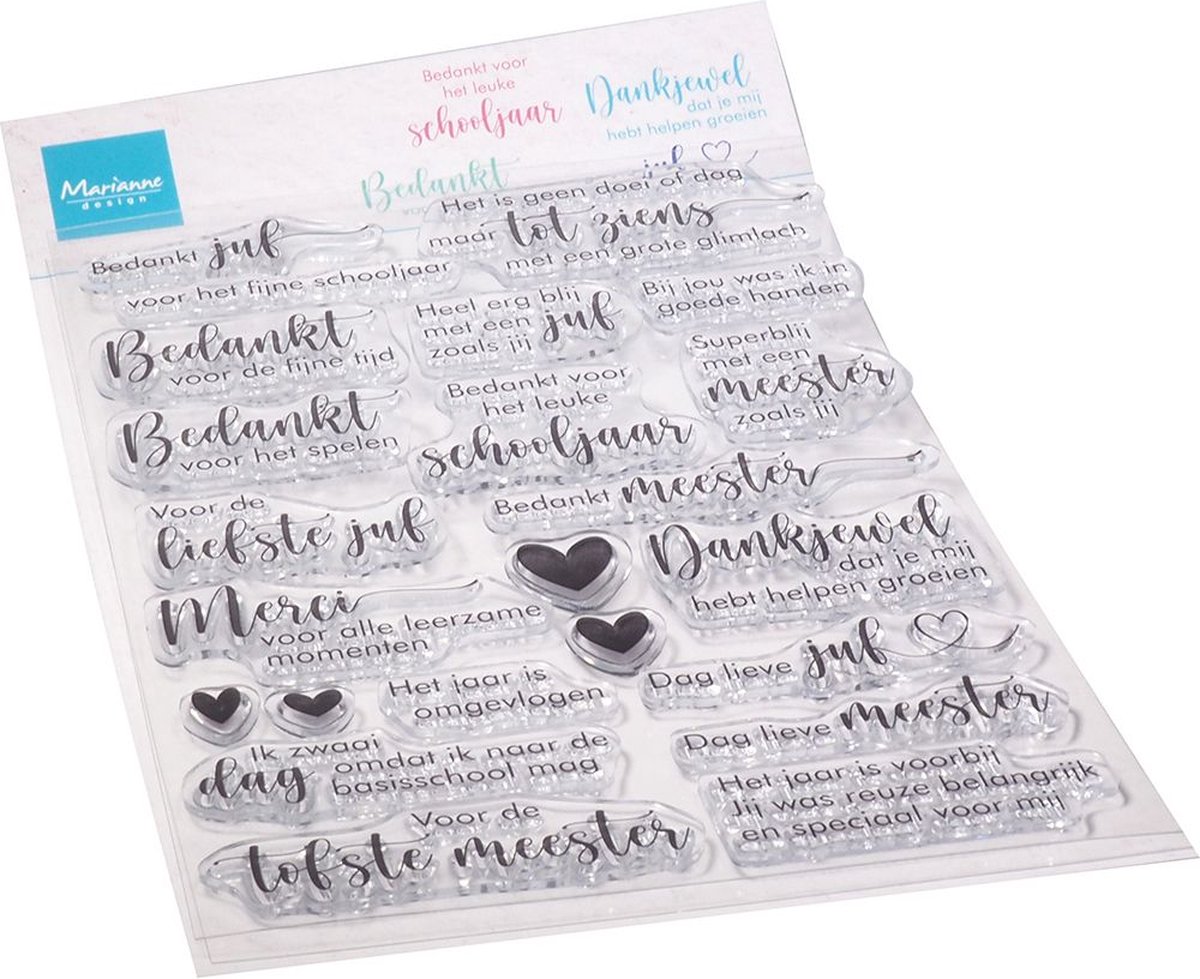 Bedankt voor
het leuke
schooljaar
Dankjewel
dat je mij
hebt helpen groeien
Marianne
design
Bedankt
juf
Bedankt juf
voor het fijne schooljaar
Het is geen doei of dag
maar tot ziens
met een grote glimlach
Bedankt
voor de fijne tijd
Heel erg blij
met een juf
zoals jij
Bij jou was ik in
goede handen
Superblij
met een
meester
zoals jij
Bedankt
voor het spelen
Bedankt voor
het leuke
schooljaar
Voor de
liefste juf
Bedankt meester
Dankjewel
dat je mij
hebt helpen groeien
Merci
voor alle leerzame
momenten
Dag lieve juf
Het jaar is
omgevlogen
Dag lieve meester
Ik zwaai
dag omdat ik naar de
basisschool mag
Het jaar is voorbij
Jij was reuze belangrijk
en speciaal voor mij
Voor de
tofste meester